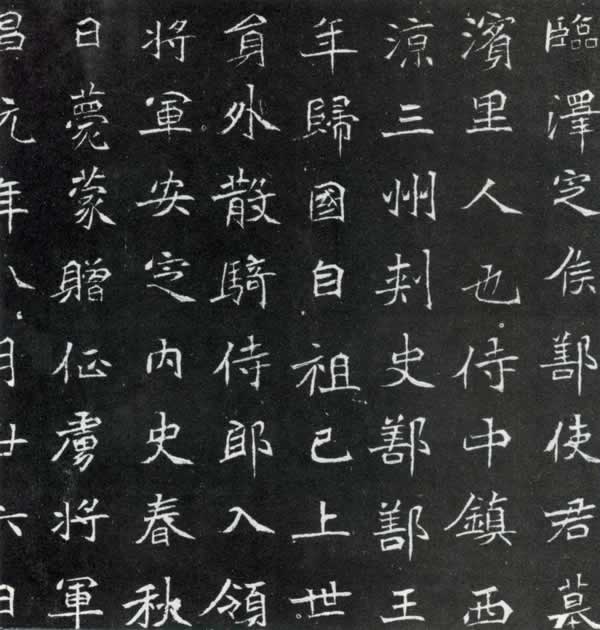 臨澤定侯鄯使君墓
濱里人也侍中鎮西
涼三州刺史鄯鄯王
年歸國自祖已上世
員外散騎侍郎入領
將軍安定內史春秋
日薨蒙贈征虜將軍
昌元年八月廿六日